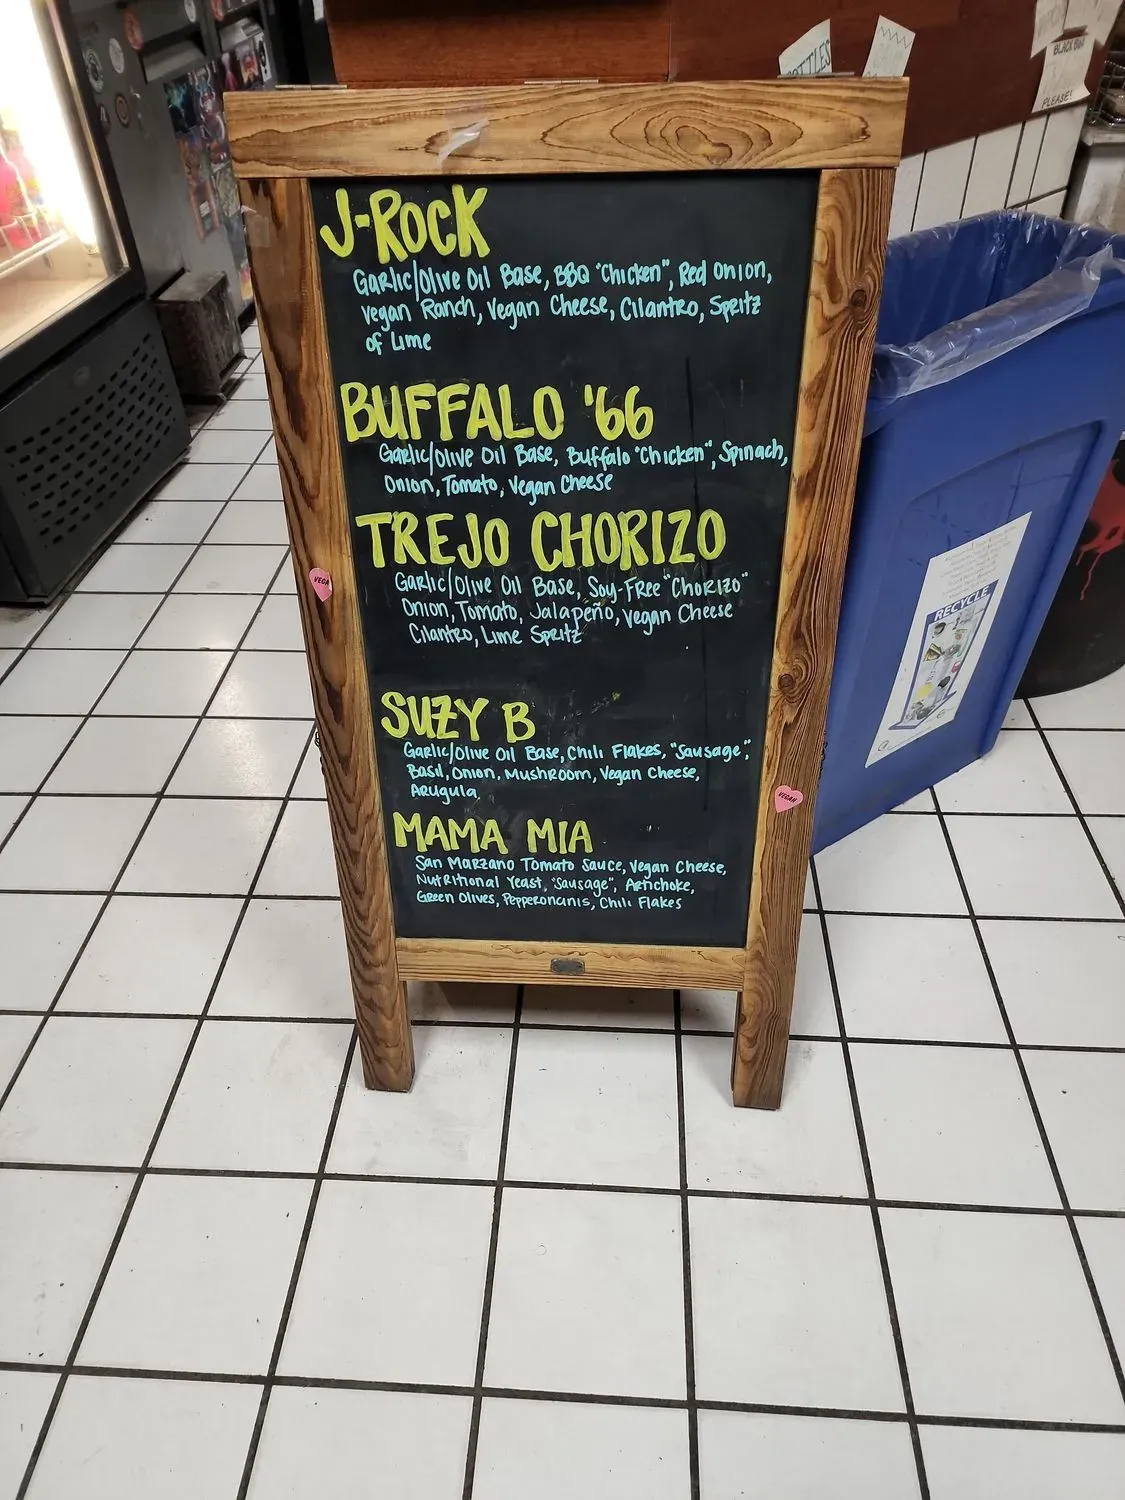 BOTTLES
BLACK BIN
PLEASE!
J-ROCK
GARLIC/OLIVE OIL BASE, BBQ "CHICKEN", RED ONION,
VEGAN RANCH, VEGAN CHEESE, CILANTRO, SPRITZ
OF LIME
BUFFALO '66
GARLIC/OLIVE OIL BASE, BUFFALO "CHICKEN", SPINACH,
ONION, TOMATO, VEGAN CHEESE
TREJO CHORIZO
GARLIC/OLIVE OIL BASE, SOY-FREE "CHORIZO"
ONION, TOMATO, JALAPEÑO, VEGAN CHEESE
CILANTRO, LIME SPRITZ
SUZY B
GARLIC/OLIVE OIL BASE, CHILI FLAKES, "SAUSAGE",
BASIL, ONION, MUSHROOM, VEGAN CHEESE,
ARUGULA
MAMA MIA
SAN MARZANO TOMATO SAUCE, VEGAN CHEESE,
NUTRITIONAL YEAST, "SAUSAGE", ARTICHOKE,
GREEN OLIVES, PEPPERONCINIS, CHILI FLAKES
VEGAN
VEGAN
RECYCLE